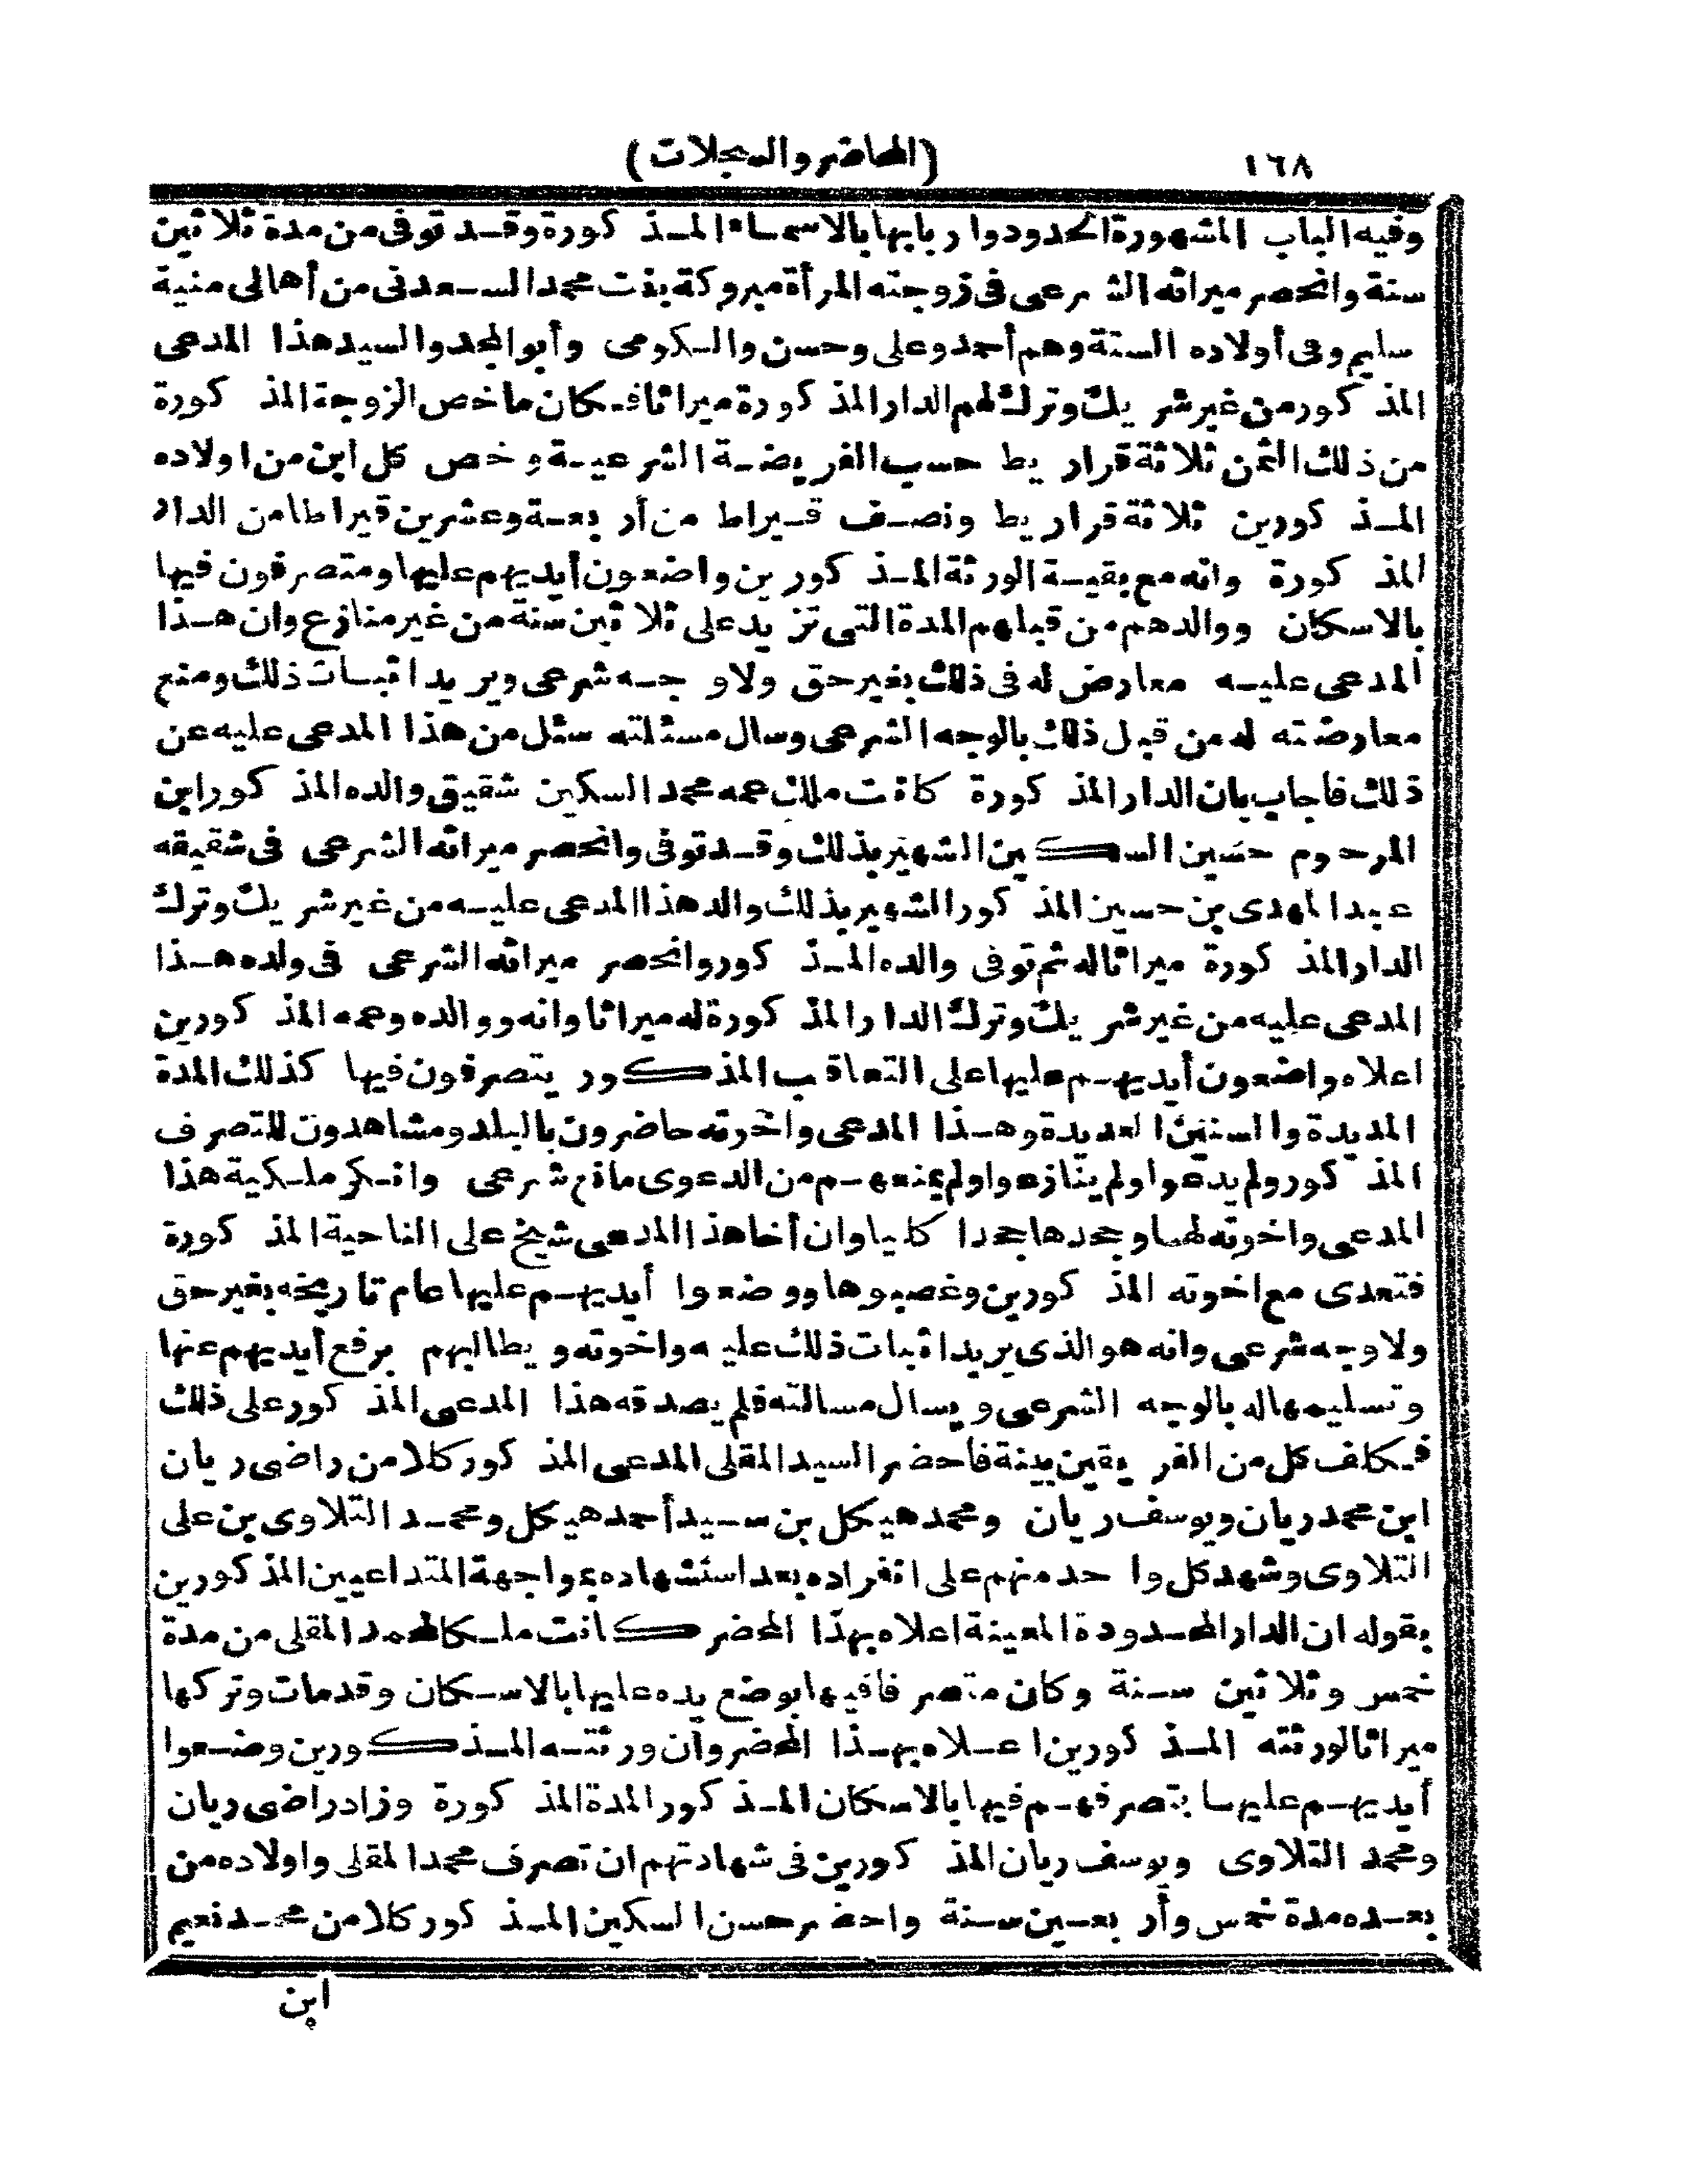 ١٦٨
(المحاضر والسجلات)
وفيه الباب المشهورة الحدود وأربابها بالاسماء المذكورة وقد توفى من مدة ثلاثين
سنة وانحصر ميراثه الشرعى فى زوجته المرأة مبروكة بنت محمد السعدنى من أهالى منية
سليم وفى أولاده الستة وهم أحمد وعلى وحسن والكومى وأبو المجد والسيد هذا المدعى
المذكور من غير شريك وترك لهم الدار المذكورة ميراثا فكان ما خص الزوجة المذكورة
من ذلك الثمن ثلاثة قراريط حسب الفريضة الشرعية وخص كل ابن من اولاده
المذكورين ثلاثة قراريط ونصف قيراط من أربعة وعشرين قيراطا من الدار
المذكورة وانه مع بقية الورثة المذكورين واضعون أيديهم عليها ومتصرفون فيها
بالاسكان ووالدهم من قبلهم المدة التى تزيد على ثلاثين سنة من غير منازع وان هذا
المدعى عليه معارض له فى ذلك بغير حق ولا وجه شرعى ويريد اثبات ذلك ومنع
معارضته له من قبل ذلك بالوجه الشرعى وسال مسئلته سئل من هذا المدعى عليه عن
ذلك فاجاب بان الدار المذكورة كانت ملك عمه محمد السكين شقيق والده المذكور ابن
المرحوم حسين السكين الشهير بذلك وقد توفى وانحصر ميراثه الشرعى فى شقيقه
عبد المهدى بن حسين المذكور الشهير بذلك والد هذا المدعى عليه من غير شريك وترك
الدار المذكورة ميراثا له ثم توفى والده المذكور وانحصر ميراثه الشرعى فى ولده هذا
المدعى عليه من غير شريك وترك الدار المذكورة له ميراثا وانه ووالده وعمه المذكورين
اعلاه واضعون أيديهم عليها على التعاقب المذكور يتصرفون فيها كذلك المدة
المديدة والسنين العديدة وهذا المدعى واخوته حاضرون بالبلد ومشاهدون للتصرف
المذكور ولم يدعوا ولم ينازعوا ولم يمنعهم من الدعوى مانع شرعى وانكر ملكية هذا
المدعى واخوته لهما وجحدها جحدا كليا وان أخا هذا المدعى شيخ على الناحية المذكورة
فتعدى مع اخوته المذكورين وغصبوها ووضعوا أيديهم عليها عام تاريخه بغير حق
ولا وجه شرعى وانه هو الذى يريد اثبات ذلك عليه واخوته ويطالبهم برفع أيديهم عنها
وتسليمها له بالوجه الشرعى ويسال مسالته فلم يصدقه هذا المدعى المذكور على ذلك
فكلف كل من الفريقين بينة فاحضر السيد المقلى المدعى المذكور كلا من راضى ريان
ابن محمد ريان ويوسف ريان ومحمد هيكل بن سيد أحمد هيكل ومحمد التلاوى بن على
التلاوى وشهد كل واحد منهم على انفراده بعد استشهاده بمواجهة المتداعيين المذكورين
بقوله ان الدار المحدودة المعينة اعلاه بهذا المحضر كانت ملكا لمحمد المقلى من مدة
خمس وثلاثين سنة وكان متصرفا فيها بوضع يده عليها بالاسكان وقد مات وتركها
ميراثا لورثته المذكورين اعلاه بهذا المحضر وان ورثته المذكورين وضعوا
أيديهم عليها بتصرفهم فيها بالاسكان المذكور المدة المذكورة وزاد راضى ريان
ومحمد التلاوى ويوسف ريان المذكورين فى شهادتهم ان تصرف محمد المقلى واولاده من
بعده مدة خمس وأربعين سنة واحضر حسن السكين المذكور كلا من محمد نعيم
ابن